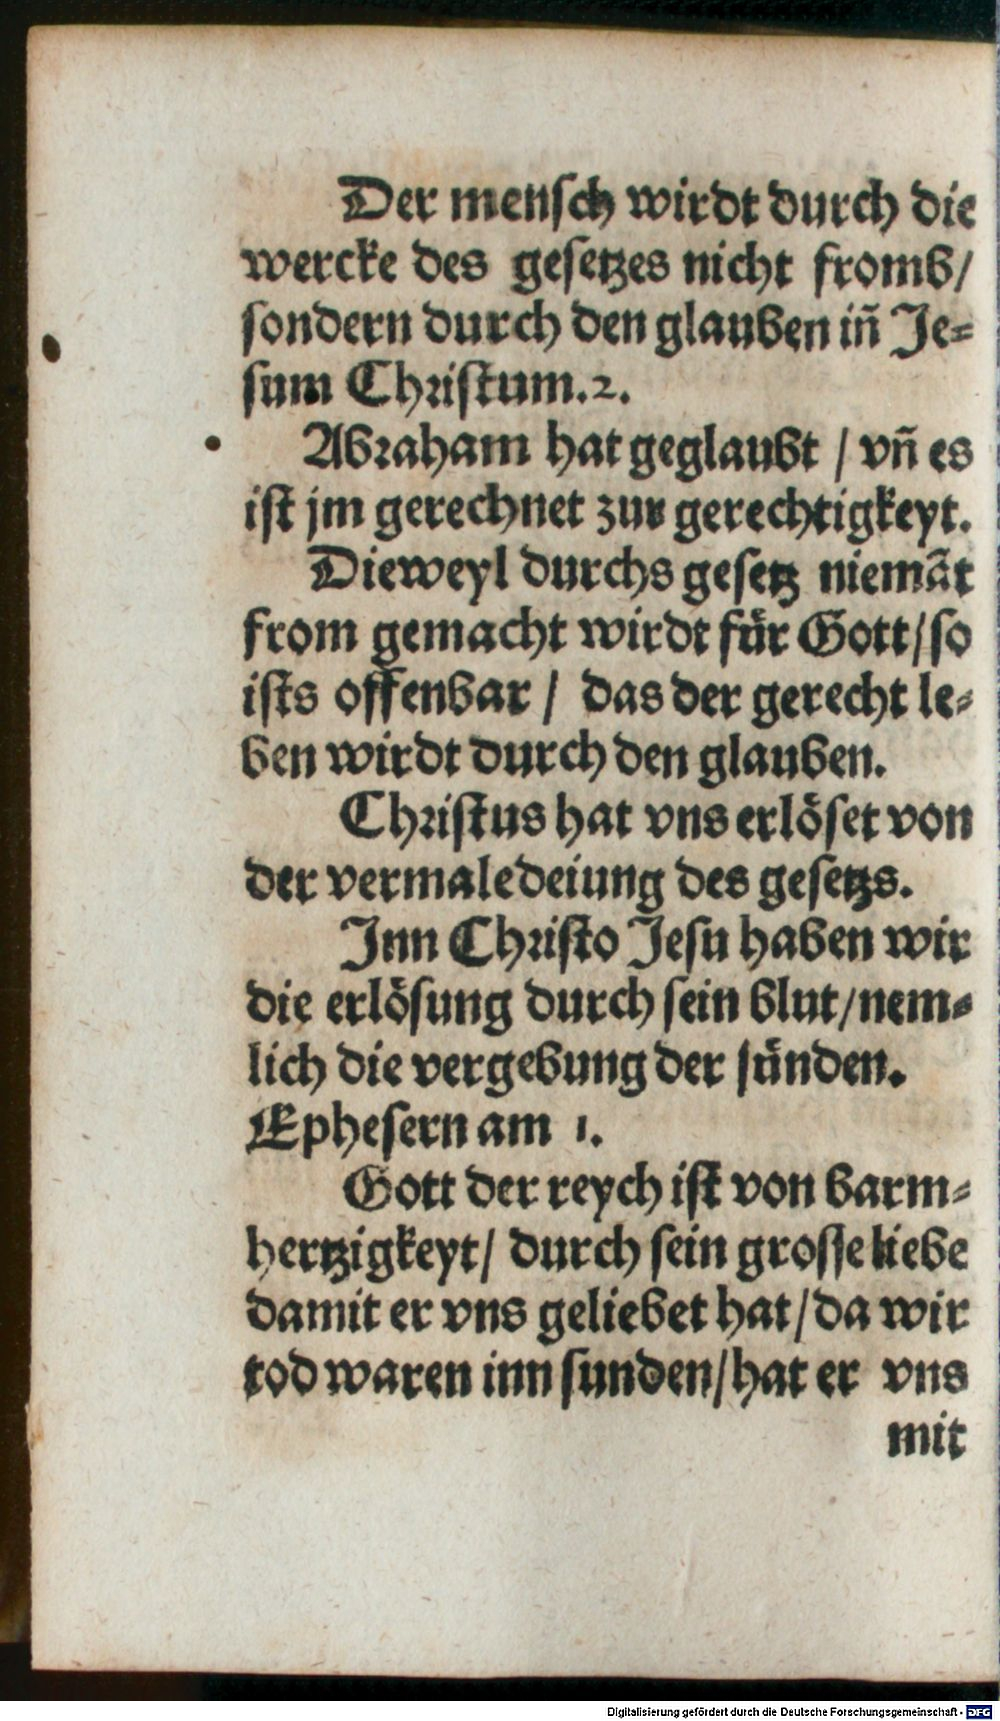 Der mensch wirdt durch die
wercke des gesetzes nicht fromb/
sondern durch den glauben in̄ Je⸗
sum Christum.2.
Abraham hat geglaubt / vn̄ es
ist jm gerechnet zur gerechtigkeyt.
Dieweyl durchs gesetz niemāt
from gemacht wirdt für Gott/so
ists offenbar / das der gerecht le⸗
ben wirdt durch den glauben.
Christus hat vns erlöset von
der vermaledeiung des gesetzs.
Jnn Christo Jesu haben wir
die erlösung durch sein blut/nem⸗
lich die vergebung der sünden.
Ephesern am 1.
Gott der reych ist von barm⸗
hertzigkeyt/ durch sein grosse liebe
damit er vns geliebet hat/da wir
tod waren inn sunden/hat er vns
mit
Digitalisierung gefördert durch die Deutsche Forschungsgemeinschaft - DFG